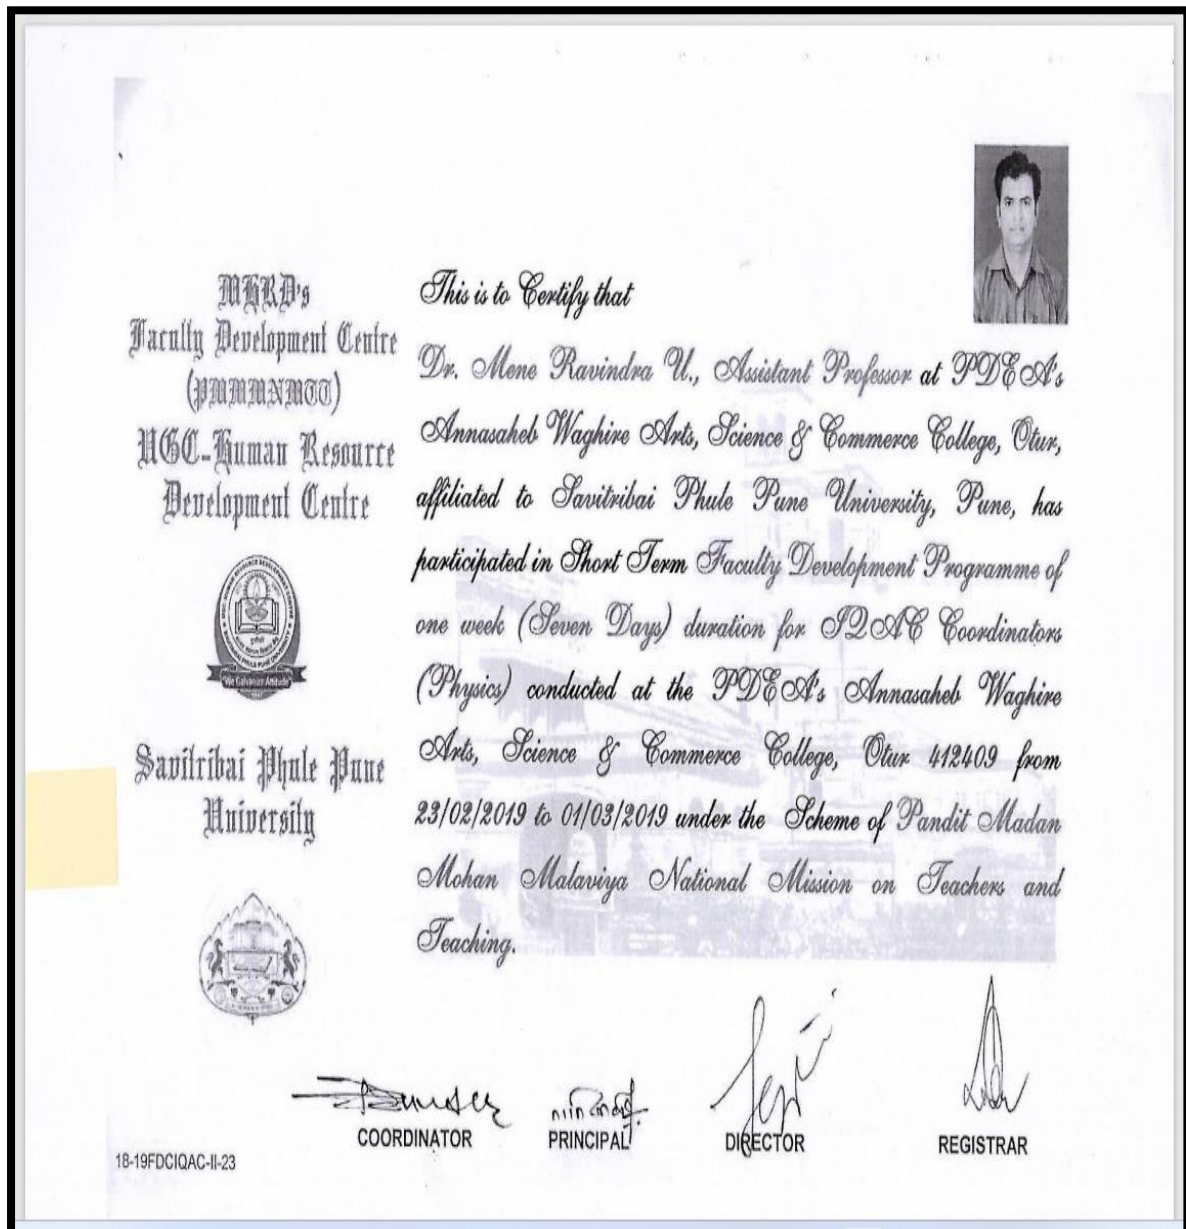 MHRD's
Faculty Development Centre
(PMMMNMTT)
UGC-Human Resource
Development Centre
"We Galvanize Attitude"
Savitribai Phule Pune
University
This is to Certify that
Dr. Mene Ravindra U., Assistant Professor at PDEA's
Annasaheb Waghire Arts, Science & Commerce College, Otur,
affiliated to Savitribai Phule Pune University, Pune, has
participated in Short Term Faculty Development Programme of
one week (Seven Days) duration for IQAC Coordinators
(Physics) conducted at the PDEA's Annasaheb Waghire
Arts, Science & Commerce College, Otur 412409 from
23/02/2019 to 01/03/2019 under the Scheme of Pandit Madan
Mohan Malaviya National Mission on Teachers and
Teaching.
COORDINATOR PRINCIPAL DIRECTOR REGISTRAR
18-19FDCIQAC-II-23